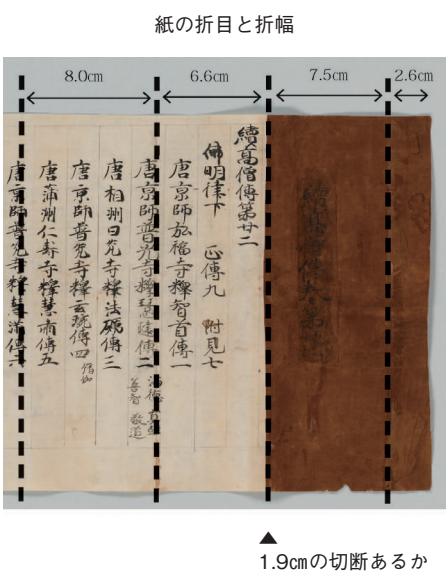 紙の折目と折幅
8.0㎝ 6.6㎝ 7.5㎝ 2.6㎝
續高僧傳第廿二
佛明律下 正傳九 附見七
唐京師弘福寺釋智首傳一
唐京師普光寺釋慧璡傳二
善智 敬道
唐相州日光寺釋法礪傳三
唐京師普光寺釋玄琬傳四 僧伽
唐蒲州仁壽寺釋慧肅傳五
唐京師普光寺釋慧滿傳六
▲
1.9㎝の切断あるか